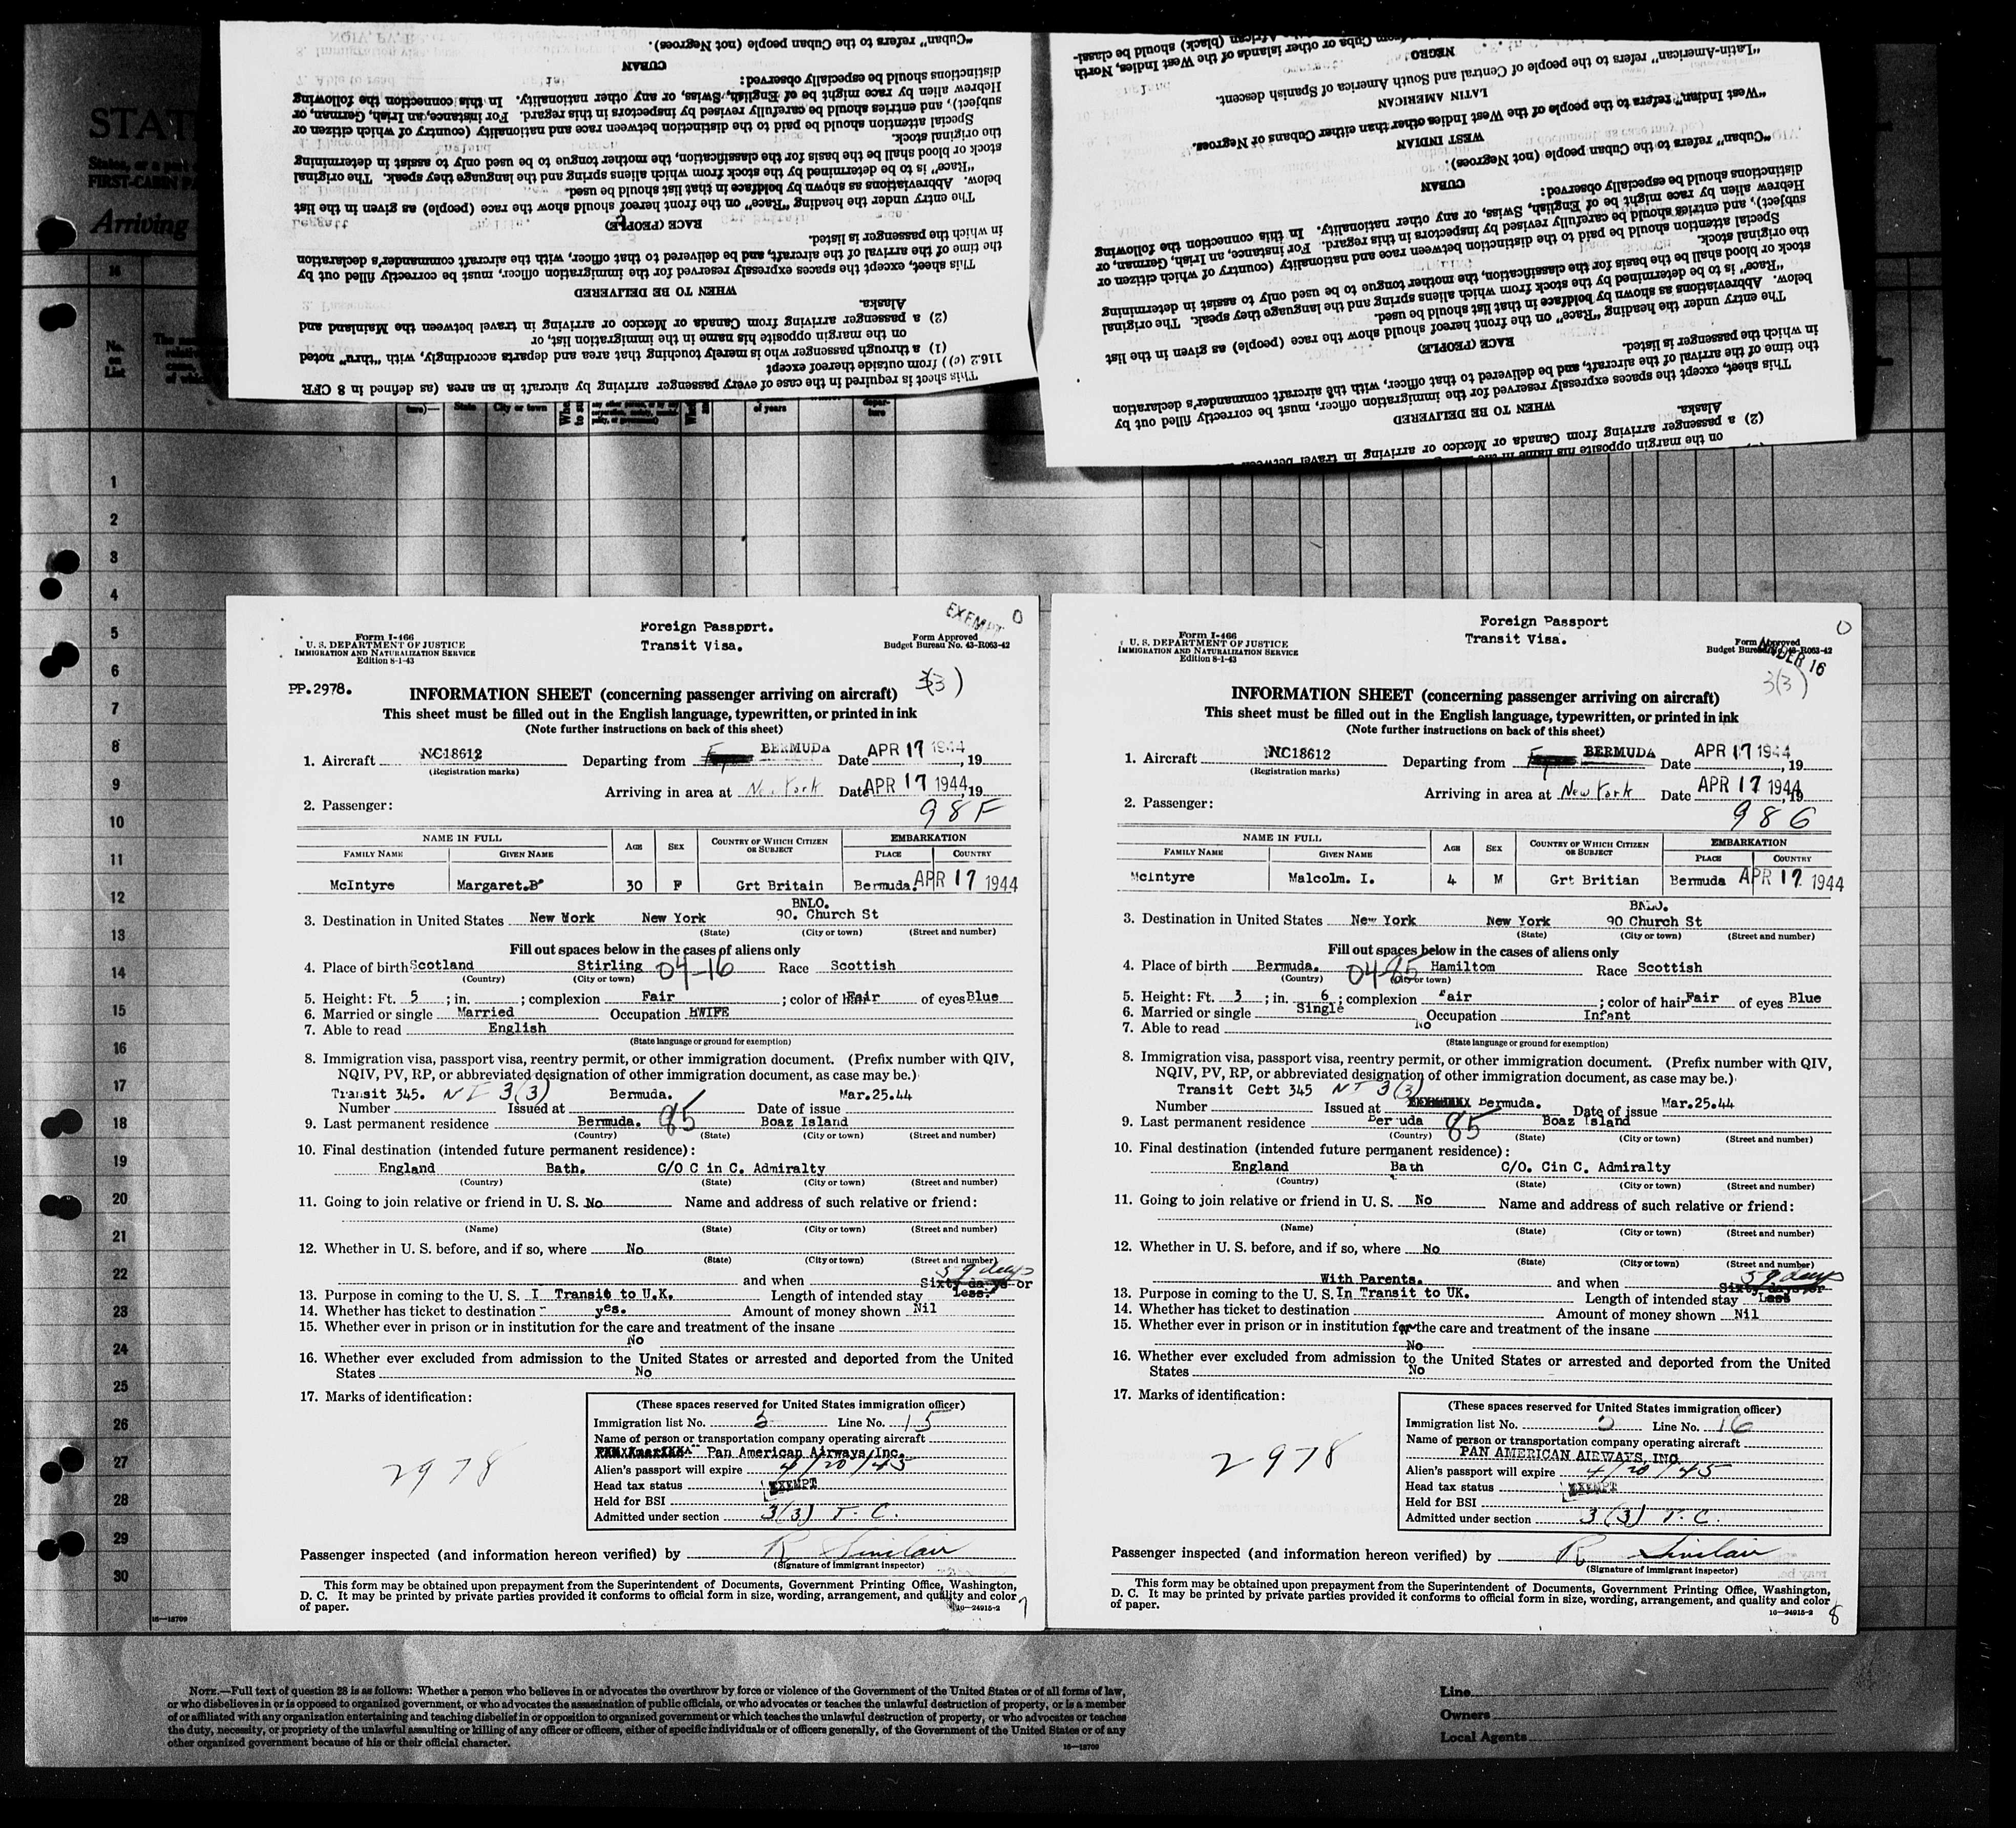 "Cuban" refers to the people (not Negroes).
CUBAN
distinctions should be especially observed:
Hebrew alien by race might be of English, Swiss, or any other nationality. In this connection the following
subject), and entries should be carefully revised by inspectors in this regard. For instance, an Irish, German, or
Special attention should be paid to the distinction between race and nationality (country of which citizen or
the original stock.
stock or blood shall be the basis for the classification, the mother tongue to be used only to assist in determining
"Race" is to be determined by the stock from which aliens spring and the language they speak. The original
below. Abbreviations as shown by boldface in that list should be used.
The entry under the heading "Race" on the front hereof should show the race (people) as given in the list
RACE (PEOPLE)
in which the passenger is listed.
the time of the arrival of the aircraft, and be delivered to that officer, with the aircraft commander's declaration
This sheet, except the spaces expressly reserved for the immigration officer, must be correctly filled out by
WHEN TO BE DELIVERED
Alaska.
(2) a passenger arriving from Canada or Mexico or arriving in travel between the Mainland and
on the margin opposite his name in the immigration list, or
(1) a through passenger who is merely touching that area and departs accordingly, with "thru" noted
116.2 (c)) from outside thereof except
This sheet is required in the case of every passenger arriving by aircraft in an area (as defined in 8 CFR
"Latin-American" refers to the people of Central and South America of Spanish descent.
NEGRO
LATIN AMERICAN
"West Indian" refers to the people of the West Indies other than either Cubans or Negroes.
WEST INDIAN
"Cuban" refers to the Cuban people (not Negroes).
CUBAN
distinctions should be especially observed:
Hebrew alien by race might be of English, Swiss, or any other nationality. In this connection the following
subject), and entries should be carefully revised by inspectors in this regard. For instance, an Irish, German, or
Special attention should be paid to the distinction between race and nationality (country of which citizen or
the original stock.
stock or blood shall be the basis for the classification, the mother tongue to be used only to assist in determining
"Race" is to be determined by the stock from which aliens spring and the language they speak. The original
below. Abbreviations as shown by boldface in that list should be used.
The entry under the heading "Race" on the front hereof should show the race (people) as given in the list
RACE (PEOPLE)
in which the passenger is listed.
the time of the arrival of the aircraft, and be delivered to that officer, with the aircraft commander's declaration
This sheet, except the spaces expressly reserved for the immigration officer, must be correctly filled out by
WHEN TO BE DELIVERED
Alaska.
(2) a passenger arriving from Canada or Mexico or arriving in travel
on the margin opposite his name in the
STAT
FIRST-CABIN PA
Arriving
No.
on
List
State
City or town
of years
1
2
3
4
5
6
7
8
9
10
11
12
13
14
15
16
17
18
19
20
21
22
23
24
25
26
27
28
29
30
16—18709
Foreign Passport.
Transit Visa.
EXEMPT
0
Form I-466
U. S. DEPARTMENT OF JUSTICE
IMMIGRATION AND NATURALIZATION SERVICE
Edition 8-1-43
Form Approved
Budget Bureau No. 43-R063-42
PP.2978.
3(3)
INFORMATION SHEET (concerning passenger arriving on aircraft)
This sheet must be filled out in the English language, typewritten, or printed in ink
(Note further instructions on back of this sheet)
1. Aircraft NC18612 Departing from BERMUDA Date APR 17 1944, 19
(Registration marks)
Arriving in area at New York Date APR 17 1944, 19
2. Passenger: 98F
NAME IN FULL AGE SEX COUNTRY OF WHICH CITIZEN OR SUBJECT EMBARKATION
FAMILY NAME GIVEN NAME PLACE COUNTRY
McIntyre Margaret.B 30 F Grt Britain Bermuda. APR 17 1944
BNLO.
3. Destination in United States New York New York 90. Church St
(State) (City or town) (Street and number)
Fill out spaces below in the cases of aliens only
4. Place of birth Scotland Stirling 04-16 Race Scottish
(Country) (City or town)
5. Height: Ft. 5 ; in. ; complexion Fair ; color of hair Fair of eyes Blue
6. Married or single Married Occupation HWIFE
7. Able to read English
(State language or ground for exemption)
8. Immigration visa, passport visa, reentry permit, or other immigration document. (Prefix number with QIV,
NQIV, PV, RP, or abbreviated designation of other immigration document, as case may be.)
Transit 345. NI 3(3) Bermuda. Mar.25.44
Number Issued at Date of issue
9. Last permanent residence Bermuda. 85 Boaz Island
(Country) (State) (City or town) (Street and number)
10. Final destination (intended future permanent residence):
England Bath. C/O C in C. Admiralty
(Country) (State) (City or town) (Street and number)
11. Going to join relative or friend in U. S. No Name and address of such relative or friend:
(Name) (State) (City or town) (Street and number)
12. Whether in U. S. before, and if so, where No
(State) (City or town) (Street and number)
59 days
and when Sixty days or
13. Purpose in coming to the U. S. I Transit to U.K. Length of intended stay Less.
14. Whether has ticket to destination yes. Amount of money shown Nil
15. Whether ever in prison or in institution for the care and treatment of the insane
No
16. Whether ever excluded from admission to the United States or arrested and deported from the United
States No
17. Marks of identification:
2978
(These spaces reserved for United States immigration officer)
Immigration list No. 3 Line No. 15
Name of person or transportation company operating aircraft
Pan American Airways, Inc.
Alien's passport will expire 4/20/45
Head tax status EXEMPT
Held for BSI
Admitted under section 3(3) T.C.
Passenger inspected (and information hereon verified) by R Sinclair
(Signature of immigrant inspector)
This form may be obtained upon prepayment from the Superintendent of Documents, Government Printing Office, Washington,
D. C. It may be printed by private parties provided it conforms to official form in size, wording, arrangement, and quality and color
of paper. 16—24915-2 7
Foreign Passport
Transit Visa.
0
Form I-466
U. S. DEPARTMENT OF JUSTICE
IMMIGRATION AND NATURALIZATION SERVICE
Edition 8-1-43
Form Approved
Budget Bureau No. 43-R063-42
UNDER 16
3(3)
INFORMATION SHEET (concerning passenger arriving on aircraft)
This sheet must be filled out in the English language, typewritten, or printed in ink
(Note further instructions on back of this sheet)
1. Aircraft NC18612 Departing from BERMUDA Date APR 17 1944, 19
(Registration marks)
Arriving in area at New York Date APR 17 1944, 19
2. Passenger: 98G
NAME IN FULL AGE SEX COUNTRY OF WHICH CITIZEN OR SUBJECT EMBARKATION
FAMILY NAME GIVEN NAME PLACE COUNTRY
McIntyre Malcolm. I. 4 M Grt Britian Bermuda APR 17 1944
BNLO.
3. Destination in United States New York New York 90 Church St
(State) (City or town) (Street and number)
Fill out spaces below in the cases of aliens only
4. Place of birth Bermuda. 04-85 Hamiltom Race Scottish
(Country) (City or town)
5. Height: Ft. 3 ; in. 6 ; complexion Fair ; color of hair Fair of eyes Blue
6. Married or single Single Occupation Infant
7. Able to read No
(State language or ground for exemption)
8. Immigration visa, passport visa, reentry permit, or other immigration document. (Prefix number with QIV,
NQIV, PV, RP, or abbreviated designation of other immigration document, as case may be.)
Transit Cert 345 NI 3(3)
Number Issued at Bermuda. Date of issue Mar.25.44
9. Last permanent residence Bermuda 85 Boaz Island
(Country) (State) (City or town) (Street and number)
10. Final destination (intended future permanent residence):
England Bath C/O. Cin C. Admiralty
(Country) (State) (City or town) (Street and number)
11. Going to join relative or friend in U. S. No Name and address of such relative or friend:
(Name) (State) (City or town) (Street and number)
12. Whether in U. S. before, and if so, where No
(State) (City or town) (Street and number)
59 days
With Parents. and when Sixty days or
13. Purpose in coming to the U. S. In Transit to UK. Length of intended stay Less
14. Whether has ticket to destination Amount of money shown Nil
15. Whether ever in prison or in institution for the care and treatment of the insane
No
16. Whether ever excluded from admission to the United States or arrested and deported from the United
States No
17. Marks of identification:
2978
(These spaces reserved for United States immigration officer)
Immigration list No. 3 Line No. 16
Name of person or transportation company operating aircraft
PAN AMERICAN AIRWAYS, INC.
Alien's passport will expire 4/20/45
Head tax status EXEMPT
Held for BSI
Admitted under section 3(3) T.C.
Passenger inspected (and information hereon verified) by R Sinclair
(Signature of immigrant inspector)
This form may be obtained upon prepayment from the Superintendent of Documents, Government Printing Office, Washington,
D. C. It may be printed by private parties provided it conforms to official form in size, wording, arrangement, and quality and color
of paper. 16—24915-2 8
NOTE.—Full text of question 28 is as follows: Whether a person who believes in or advocates the overthrow by force or violence of the Government of the United States or of all forms of law,
or who disbelieves in or is opposed to organized government, or who advocates the assassination of public officials, or who advocates or teaches the unlawful destruction of property, or is a member
of or affiliated with any organization entertaining and teaching disbelief in or opposition to organized government or which teaches the unlawful destruction of property, or who advocates or teaches
the duty, necessity, or propriety of the unlawful assaulting or killing of any officer or officers, either of specific individuals or of officers generally, of the Government of the United States or of any
other organized government because of his or their official character.
16—18709
Line
Owners
Local Agents